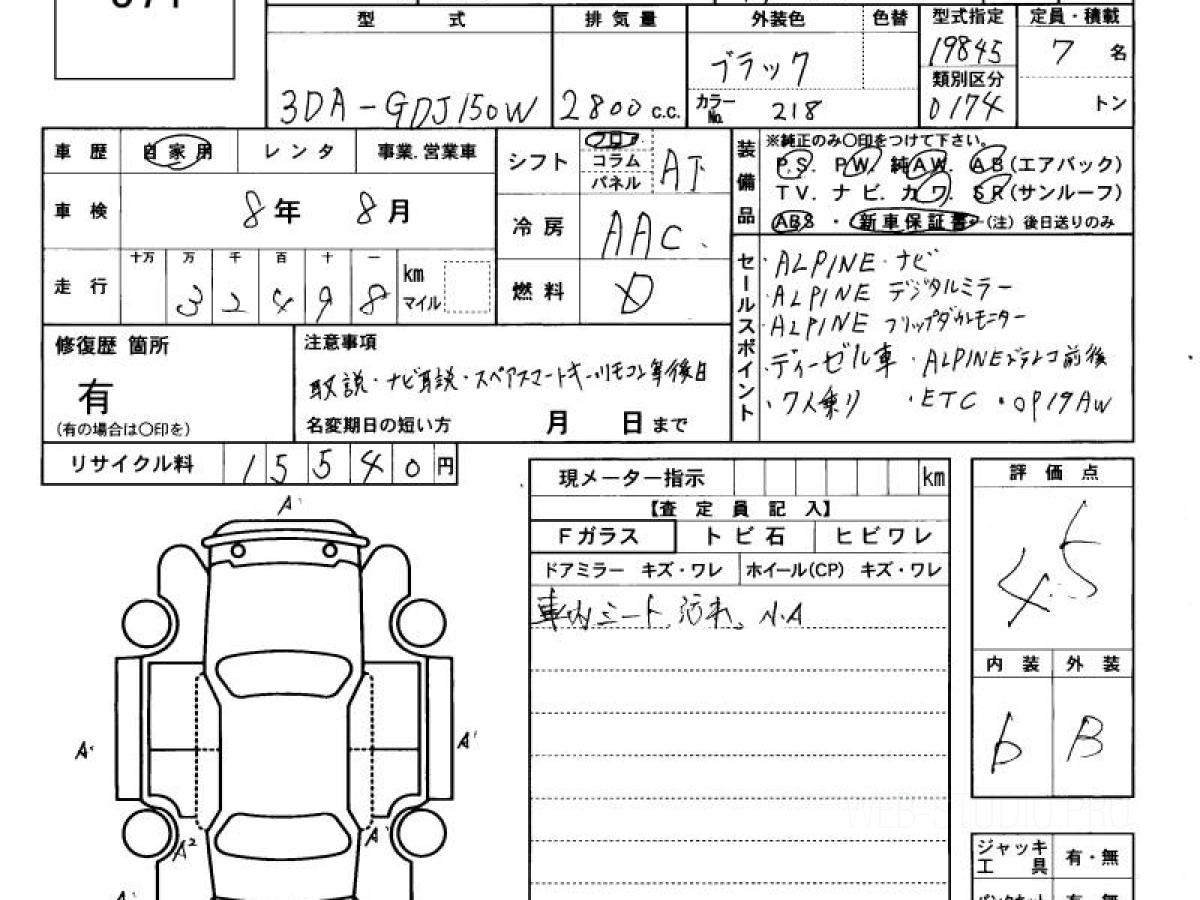 型 式 排気量 外装色 色替 型式指定 定員・積載
3DA-GDJ150W 2800 c.c. ブラック 19845 7 名
カラーNo. 218 類別区分 0174 トン
車歴 自家用 レンタ 事業.営業車
シフト フロア コラム パネル AT
車検 8年 8月
冷房 AAC
走行 十万 万 千 百 十 一 km マイル
3 2 4 9 8
燃料 D
装備品 ※純正のみ〇印をつけて下さい。
P.S. P.W. 純A.W. A.B(エアバック)
T V. ナビ. カワ. S R(サンルーフ)
ABS ・ 新車保証書 (注) 後日送りのみ
セールスポイント
・ALPINE・ナビ
・ALPINE デジタルミラー
・ALPINE フリップダウンモニター
・ディーゼル車 ・ALPINEドラレコ前後
・7人乗り ・ETC ・OP19AW
修復歴 箇所
有
(有の場合は〇印を)
注意事項
取説・ナビ取説・スペアスマートキー・リモコン等後日
名変期日の短い方 月 日まで
リサイクル料 15540円
現メーター指示 km
【査定員記入】
Fガラス トビ石 ヒビワレ
ドアミラー キズ・ワレ ホイール(CP) キズ・ワレ
車内シート汚れ、小A
評価点
4.5
内装 外装
B
ジャッキ工具 有・無
A'
A'
A'
A2
A'
A'
WEB-STUDIO PRO